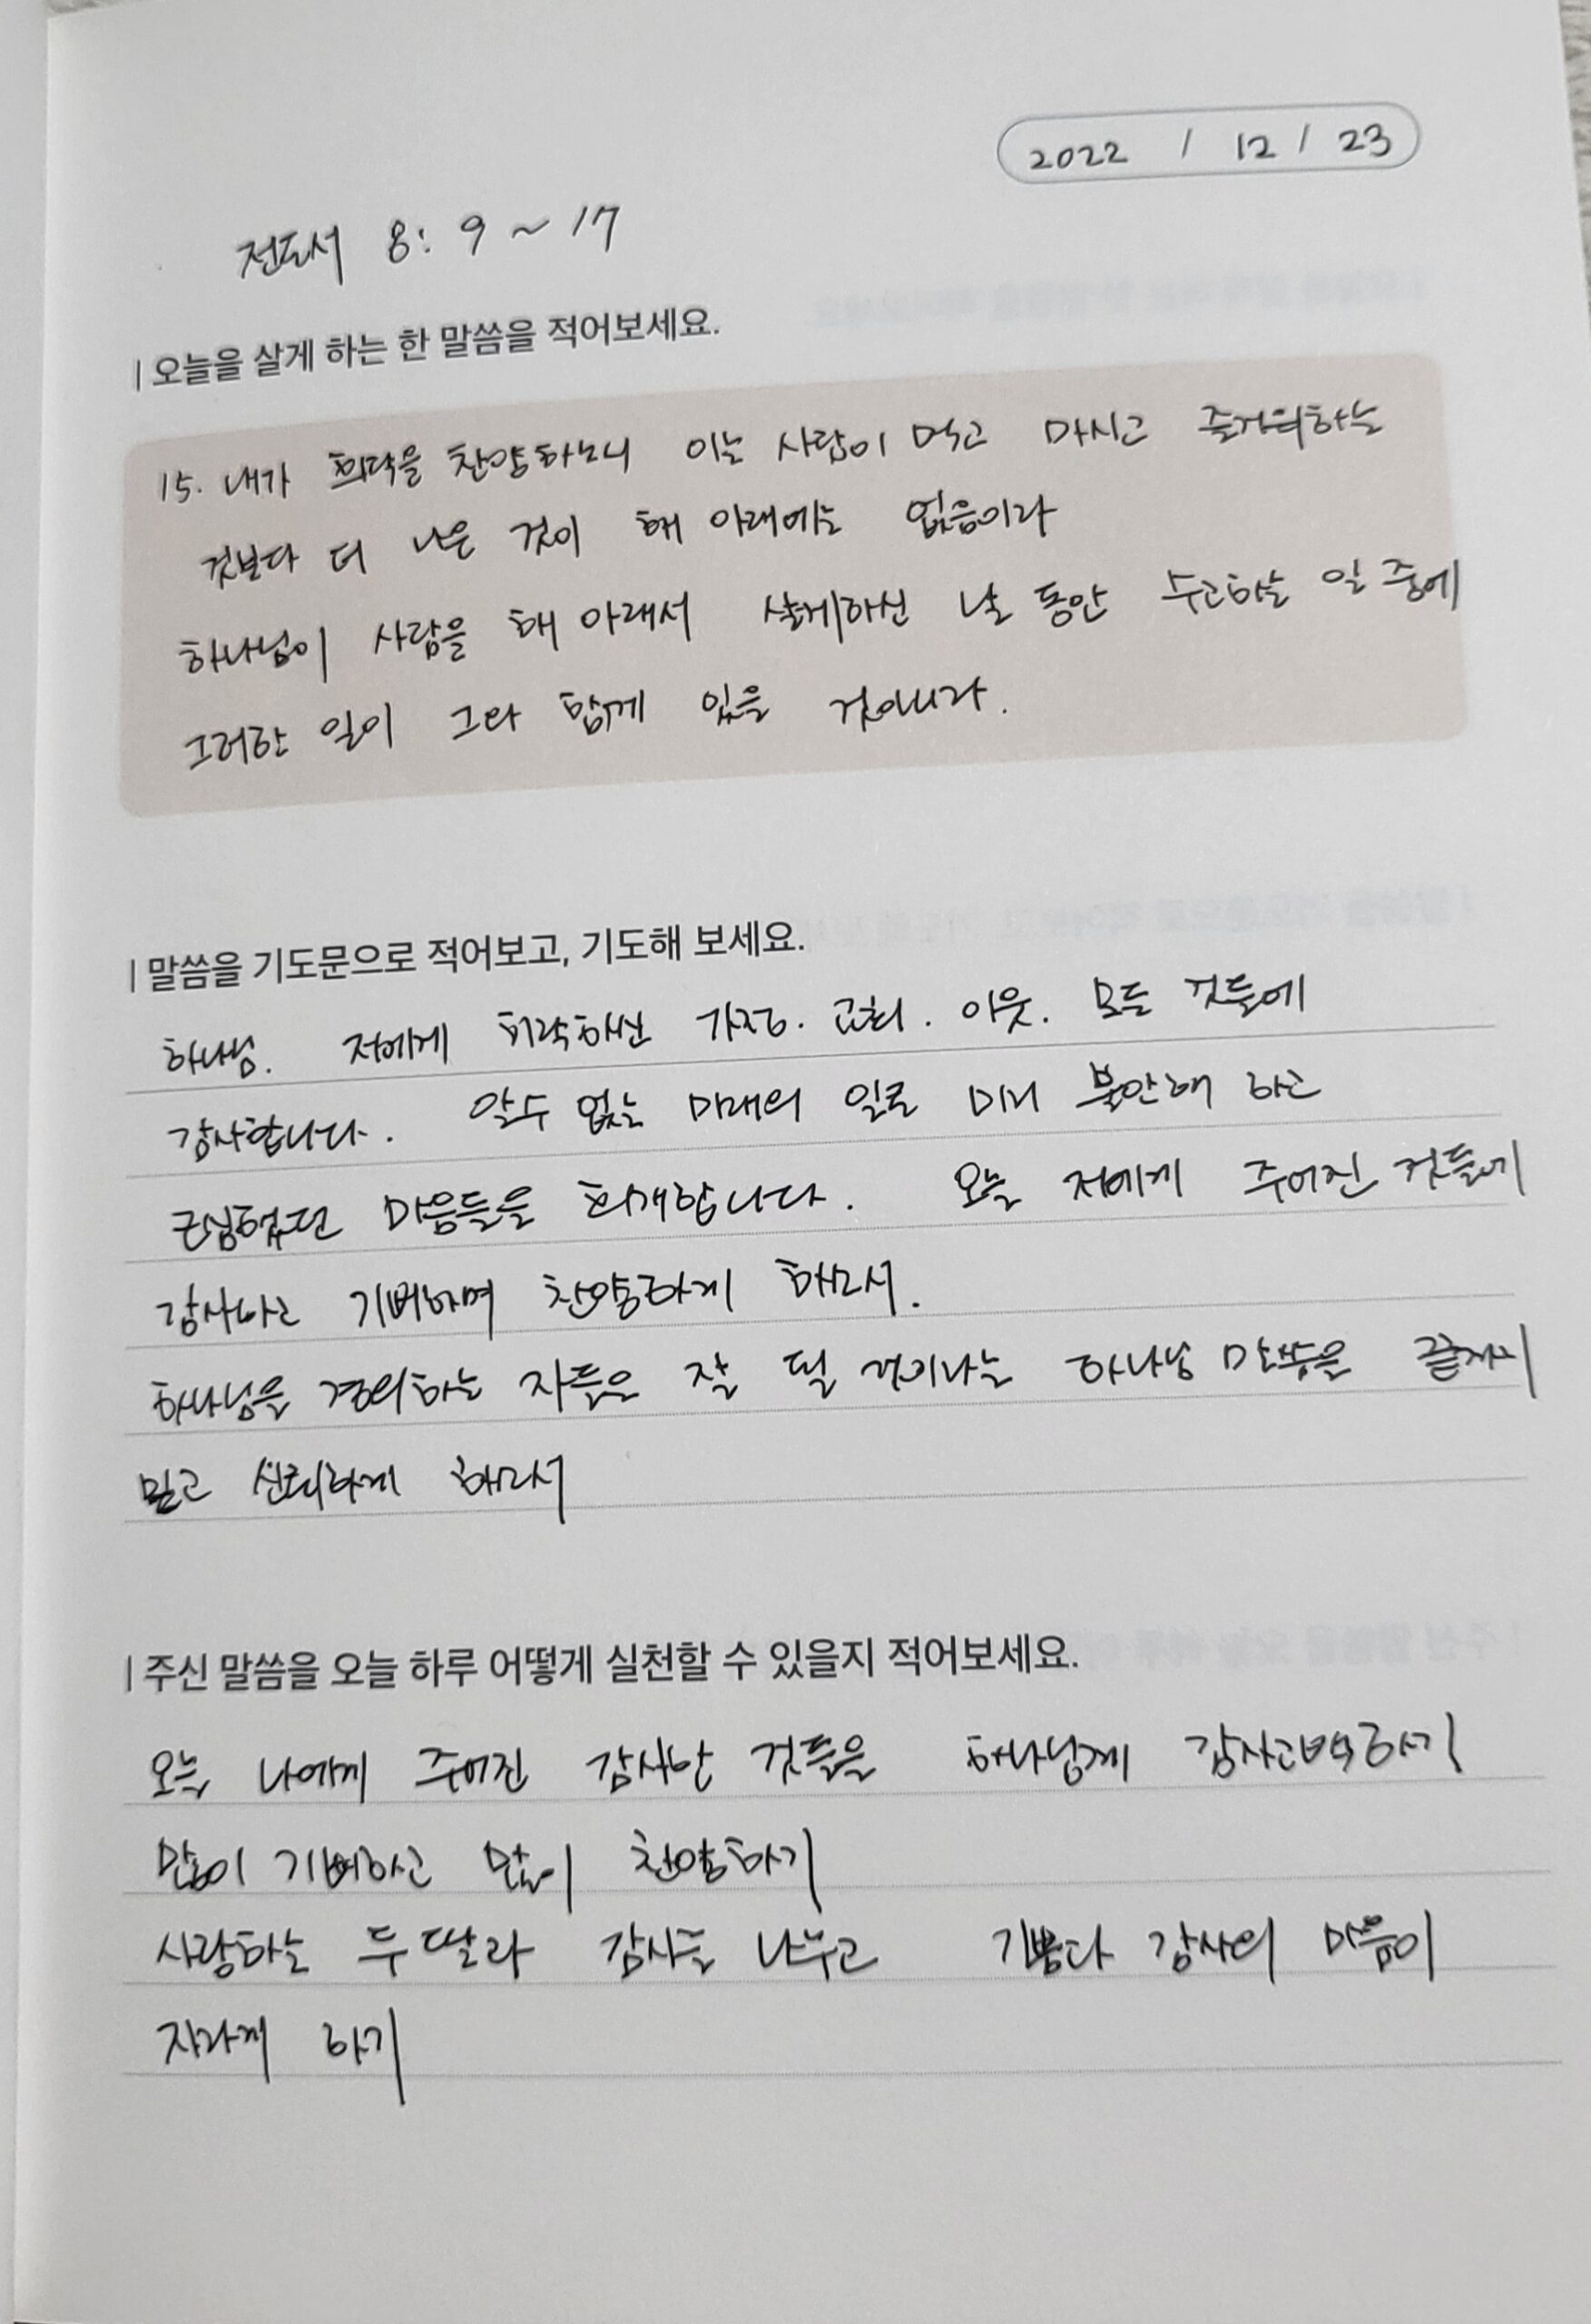 2022 / 12 / 23
전도서 8: 9 ~ 17
| 오늘을 살게 하는 한 말씀을 적어보세요.
15. 내가 희락을 찬양하노니 이는 사람이 먹고 마시고 즐거워하는
것보다 더 나은 것이 해 아래에는 없음이라
하나님이 사람을 해 아래서 살게하신 날 동안 수고하는 일 중에
그러한 일이 그와 함께 있을 것이니라.
| 말씀을 기도문으로 적어보고, 기도해 보세요.
하나님. 저에게 허락하신 가정. 교회. 이웃. 모든 것들에
감사합니다. 알수 없는 미래의 일로 미리 불안해 하고
근심했던 마음들을 회개합니다. 오늘 저에게 주어진 것들에
감사하고 기뻐하며 찬양하게 하소서.
하나님을 경외하는 자들은 잘 될 것이라는 하나님 말씀을 끝까지
믿고 신뢰하게 하소서
| 주신 말씀을 오늘 하루 어떻게 실천할 수 있을지 적어보세요.
오늘 나에게 주어진 감사한 것들을 하나님께 감사고백하기
많이 기뻐하고 많이 찬양하기
사랑하는 두 딸과 감사를 나누고 기쁨과 감사의 마음이
자라게 하기